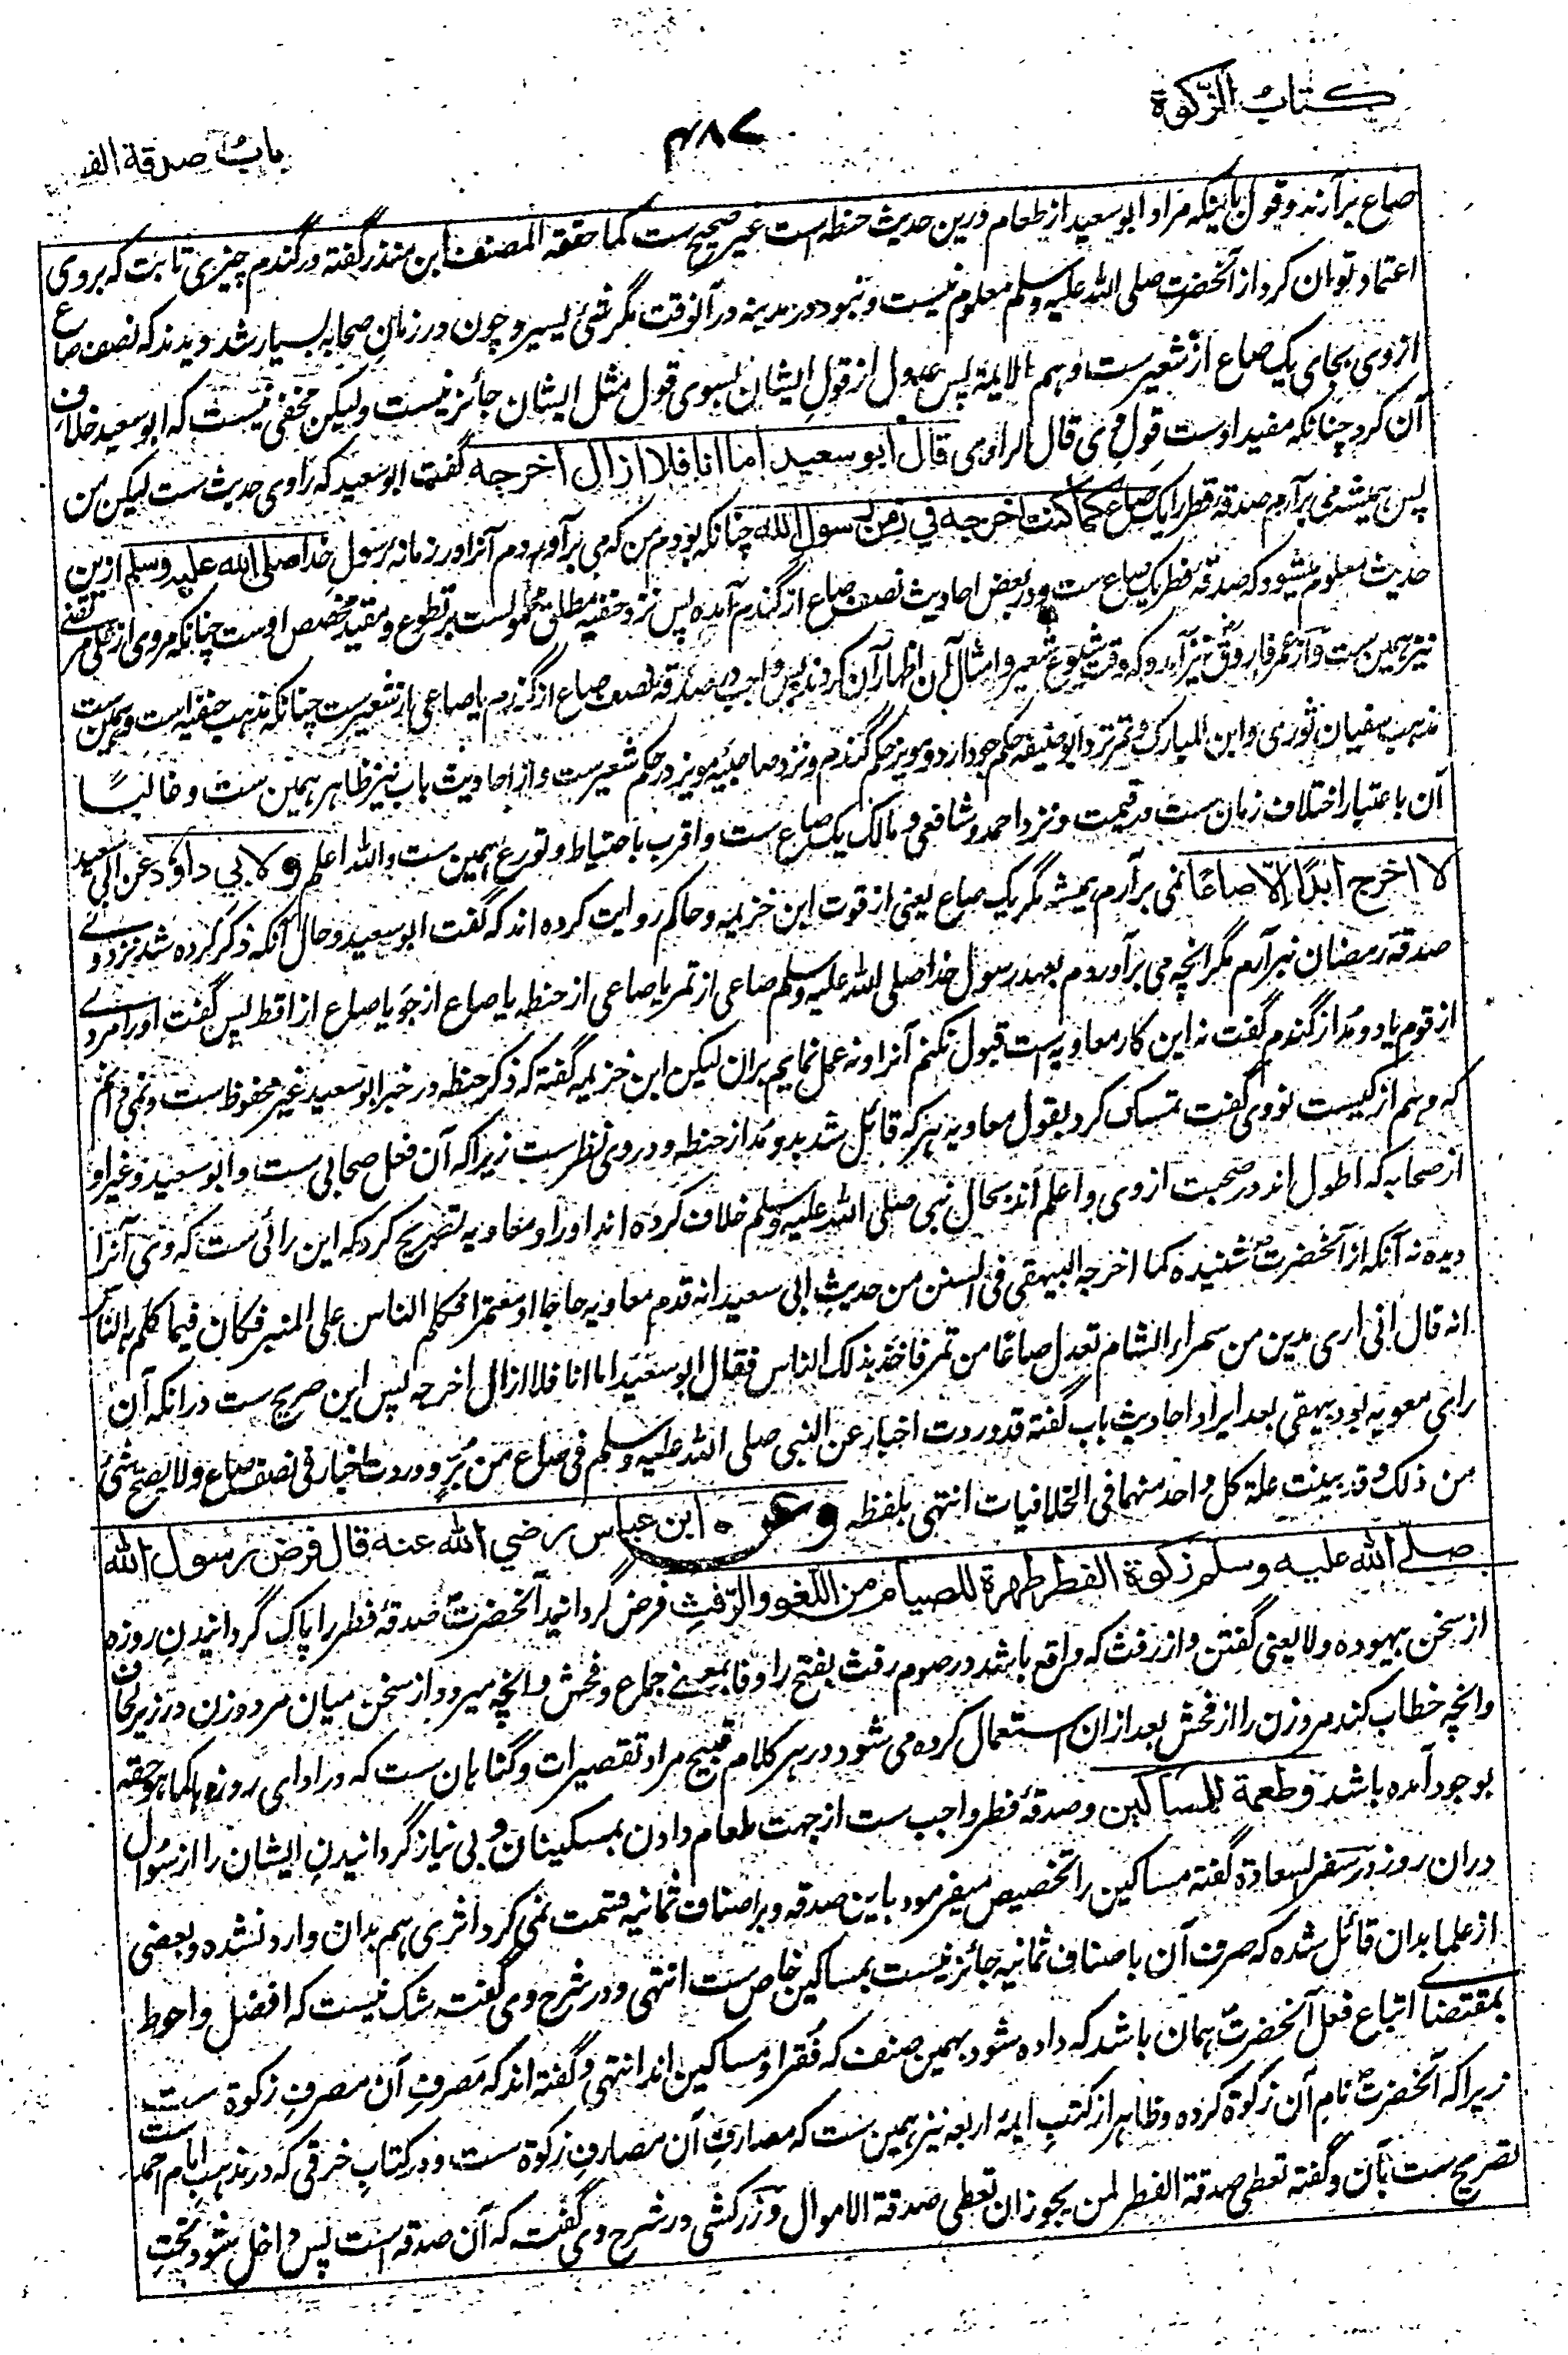 کتاب الزکوة
۴۸۷
باب صدقة الف
صاع برآرند و قول باینکه مراد ابو سعید از طعام درین حدیث حنطه است غیر صحیح ست کما حققه المصنف ابن منذر گفته در گندم چیزی ثابت که بروی
اعتماد توان کرد از آنحضرت صلی الله علیه وسلم معلوم نیست و نبود در مدینه در آنوقت مگر شئی یسیر و چون در زمان صحابه بسیار شد دیدند که نصف صاع
از وی بجای یک صاع از شعیر ست و هم الایمة پس عدول از قول ایشان بسوی قول مثل ایشان جائز نیست و لیکن مخفی نیست که ابو سعید خلاف
آن کرد چنانکه مفید اوست قول وی قال الراوی قال ابو سعید اما انا فلا ازال اخرجه گفت ابو سعید که راوی حدیث ست لیکن من
پس همیشه می برآرم صدقه فطر را یک صاع کما کنت اخرجه في زمن رسول الله چنانکه بودم من که می برآوردم آنرا در زمانه رسول خدا صلی الله علیه وسلم ازین
حدیث معلوم میشود که صدقه فطر یک صاع ست و در بعض احادیث نصف صاع از گندم آمده پس نزد حنفیه مطلق محمولست بر تطوع و مقید مخصص اوست چنانکه مروی از علی مرتضی
نیز همین ست و از عمر فاروق نیز آید و که وقت شیوع شعیر و امثال آن اظهار آن کردند پس واجب در صدقه نصف صاع از گندم یا صاعی از شعیر ست چنانکه مذهب حنفیه است و همین ست
مذهب سفیان ثوری و ابن المبارک و تمر نزد ابو حنیفه حکم جو دارد و مویز حکم گندم و نزد صاحبیه مویز در حکم شعیر ست و از احادیث باب نیز ظاهر همین ست و غالبًا
آن باعتبار اختلاف زمان ست در قیمت و نزد احمد و شافعی و مالک یک صاع ست و اقرب باحتیاط و تورع همین ست والله اعلم ولابي داؤد عن ابی سعید
لا اخرج ابدًا الّا صاعًا نمی برآرم همیشه مگر یک صاع یعنی از قوت ابن خزیمه و حاکم روایت کرده اند که گفت ابو سعید و حال آنکه ذکر کرده شد نزد وے
صدقه رمضان نبرآرم مگر انچه می برآوردم بعهد رسول خدا صلی الله علیه وسلم صاعی از تمر یا صاعی از حنطه یا صاع از جو یا صاع از اقط پس گفت اورا مردے
از قوم یا دو مُد از گندم گفت نه این کار معاویه است قبول نکنم آنرا و نه عمل نمایم بران لیکن ابن خزیمه گفته که ذکر حنطه در خبر ابو سعید غیر محفوظ ست و نمی دانم
که وهم از کیست نووی گفت تمسک کرد بقول معاویه هر که قائل شد بدو مُد از حنطه و در وی نظر ست زیرا که آن فعل صحابی ست و ابو سعید و غیر او
از صحابه که اطول اند در صحبت از وی و اعلم اند بحال نبی صلی الله علیه وسلم خلاف کرده اند اورا و معاویه تصریح کرد که این رائی ست که وی آنرا
دیده نه آنکه از آنحضرت شنیده کما اخرجه البیهقی فی السنن من حدیث ابی سعید انه قدم معاویه حاجا او معتمرا فکلم الناس علی المنبر فکان فیما کلم به الناس
انه قال انی اری مدین من سمراء الشام تعدل صاعًا من تمر فاخذ بذلک الناس فقال ابو سعید اما انا فلا ازال اخرجه پس این صریح ست درانکه آن
رای معویه بود بیهقی بعد ایراد احادیث باب گفته قد وردت اخبار عن النبی صلی الله علیه وسلم فی صاع من بُرّ و وردت اخبار فی نصف صاع ولا یصح شئ
من ذلک و قد بینت علة کل واحد منهما فی الخلافیات انتهی بلفظه وعن ابن عباس رضي الله عنه قال فرض رسول الله
صلے الله عليه وسلم زكوة الفطر طهرة للصيام من اللغو والرّفثِ فرض گردانید آنحضرت صدقه فطر را پاک گردانیدنِ روزه
از سخن بیهوده و لایعنی گفتن و از رفث که واقع باشد در صوم رفث بفتح را و فا بمعنے جماع و فحش و انچه میرود از سخن میان مرد و زن در زیر لحاف
وانچه خطاب کند مر و زن را از فحش بعد ازان استعمال کرده می شود در هر کلام قبیح مراد تقصیرات و گناهان ست که در ادای روزه ها کما هو حقه
بوجود آمده باشد وطعمة للمساكين و صدقۀ فطر واجب ست از جهت طعام دادن بمسکینان و بی نیاز گردانیدن ایشان را از سوال
دران روز در سفر السعادة گفته مساکین را تخصیص میفرمود باین صدقه و بر اصناف ثمانیه قسمت نمی کرد اثری هم بدان وارد نشده و بعضی
از علما بدان قائل شده که صرف آن باصناف ثمانیه جائز نیست بمساکین خاص ست انتهی و در شرح وی گفته شک نیست که افضل و احوط
بمقتضاے اتباع فعل آنحضرت همان باشد که داده شود بهمین صنف که فقرا و مساکین اند انتهی و گفته اند که مَصرفِ آن مصرفِ زکوة ست
زیرا که آنحضرت نامِ آن زکوة کرده و ظاهر از کتبِ ایمۀ اربعه نیز همین ست که مصارف آن مصارف زکوة ست و در کتابِ خرقی که در مذهب امام احمد ست
تصریح ست بآن و گفته تعطی صدقة الفطر لمن یجوز ان تعطی صدقة الاموال و زرکشی در شرح وی گفت که آن صدقه است پس داخل شود تحتِ